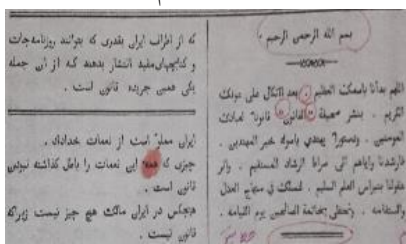 بسم الله الرحمن الرحیم .
اللهم بدأنا باسمک العظیم . بعد الاتکال علی عونک
الکریم . بنشر صحیفة " القانون " قانونا لعبادک
المومنین . ودستورا یهتدی باصوله خیر المهتدین .
فارشدنا وایاهم الی صراط الرشاد المستقیم . وانر
عقولنا بنبراس العلم السلیم . لنسلک فی منهاج العدل
والاستقامه . ونحظی بخاتمة الصالحین یوم القیامه .
که از اطراف ایران بقدری که بتوانند روزنامه‌جات
و کتابچهای مفید انتشار بدهند که از آن جمله
یکی همین جریده قانون است .
ایران مملو است از نعمات خداداد .
چیزی که همه این نعمات را باطل گذاشته نبودن
قانون است .
هیچکس در ایران مالک هیچ چیز نیست زیرکه
قانون نیست .